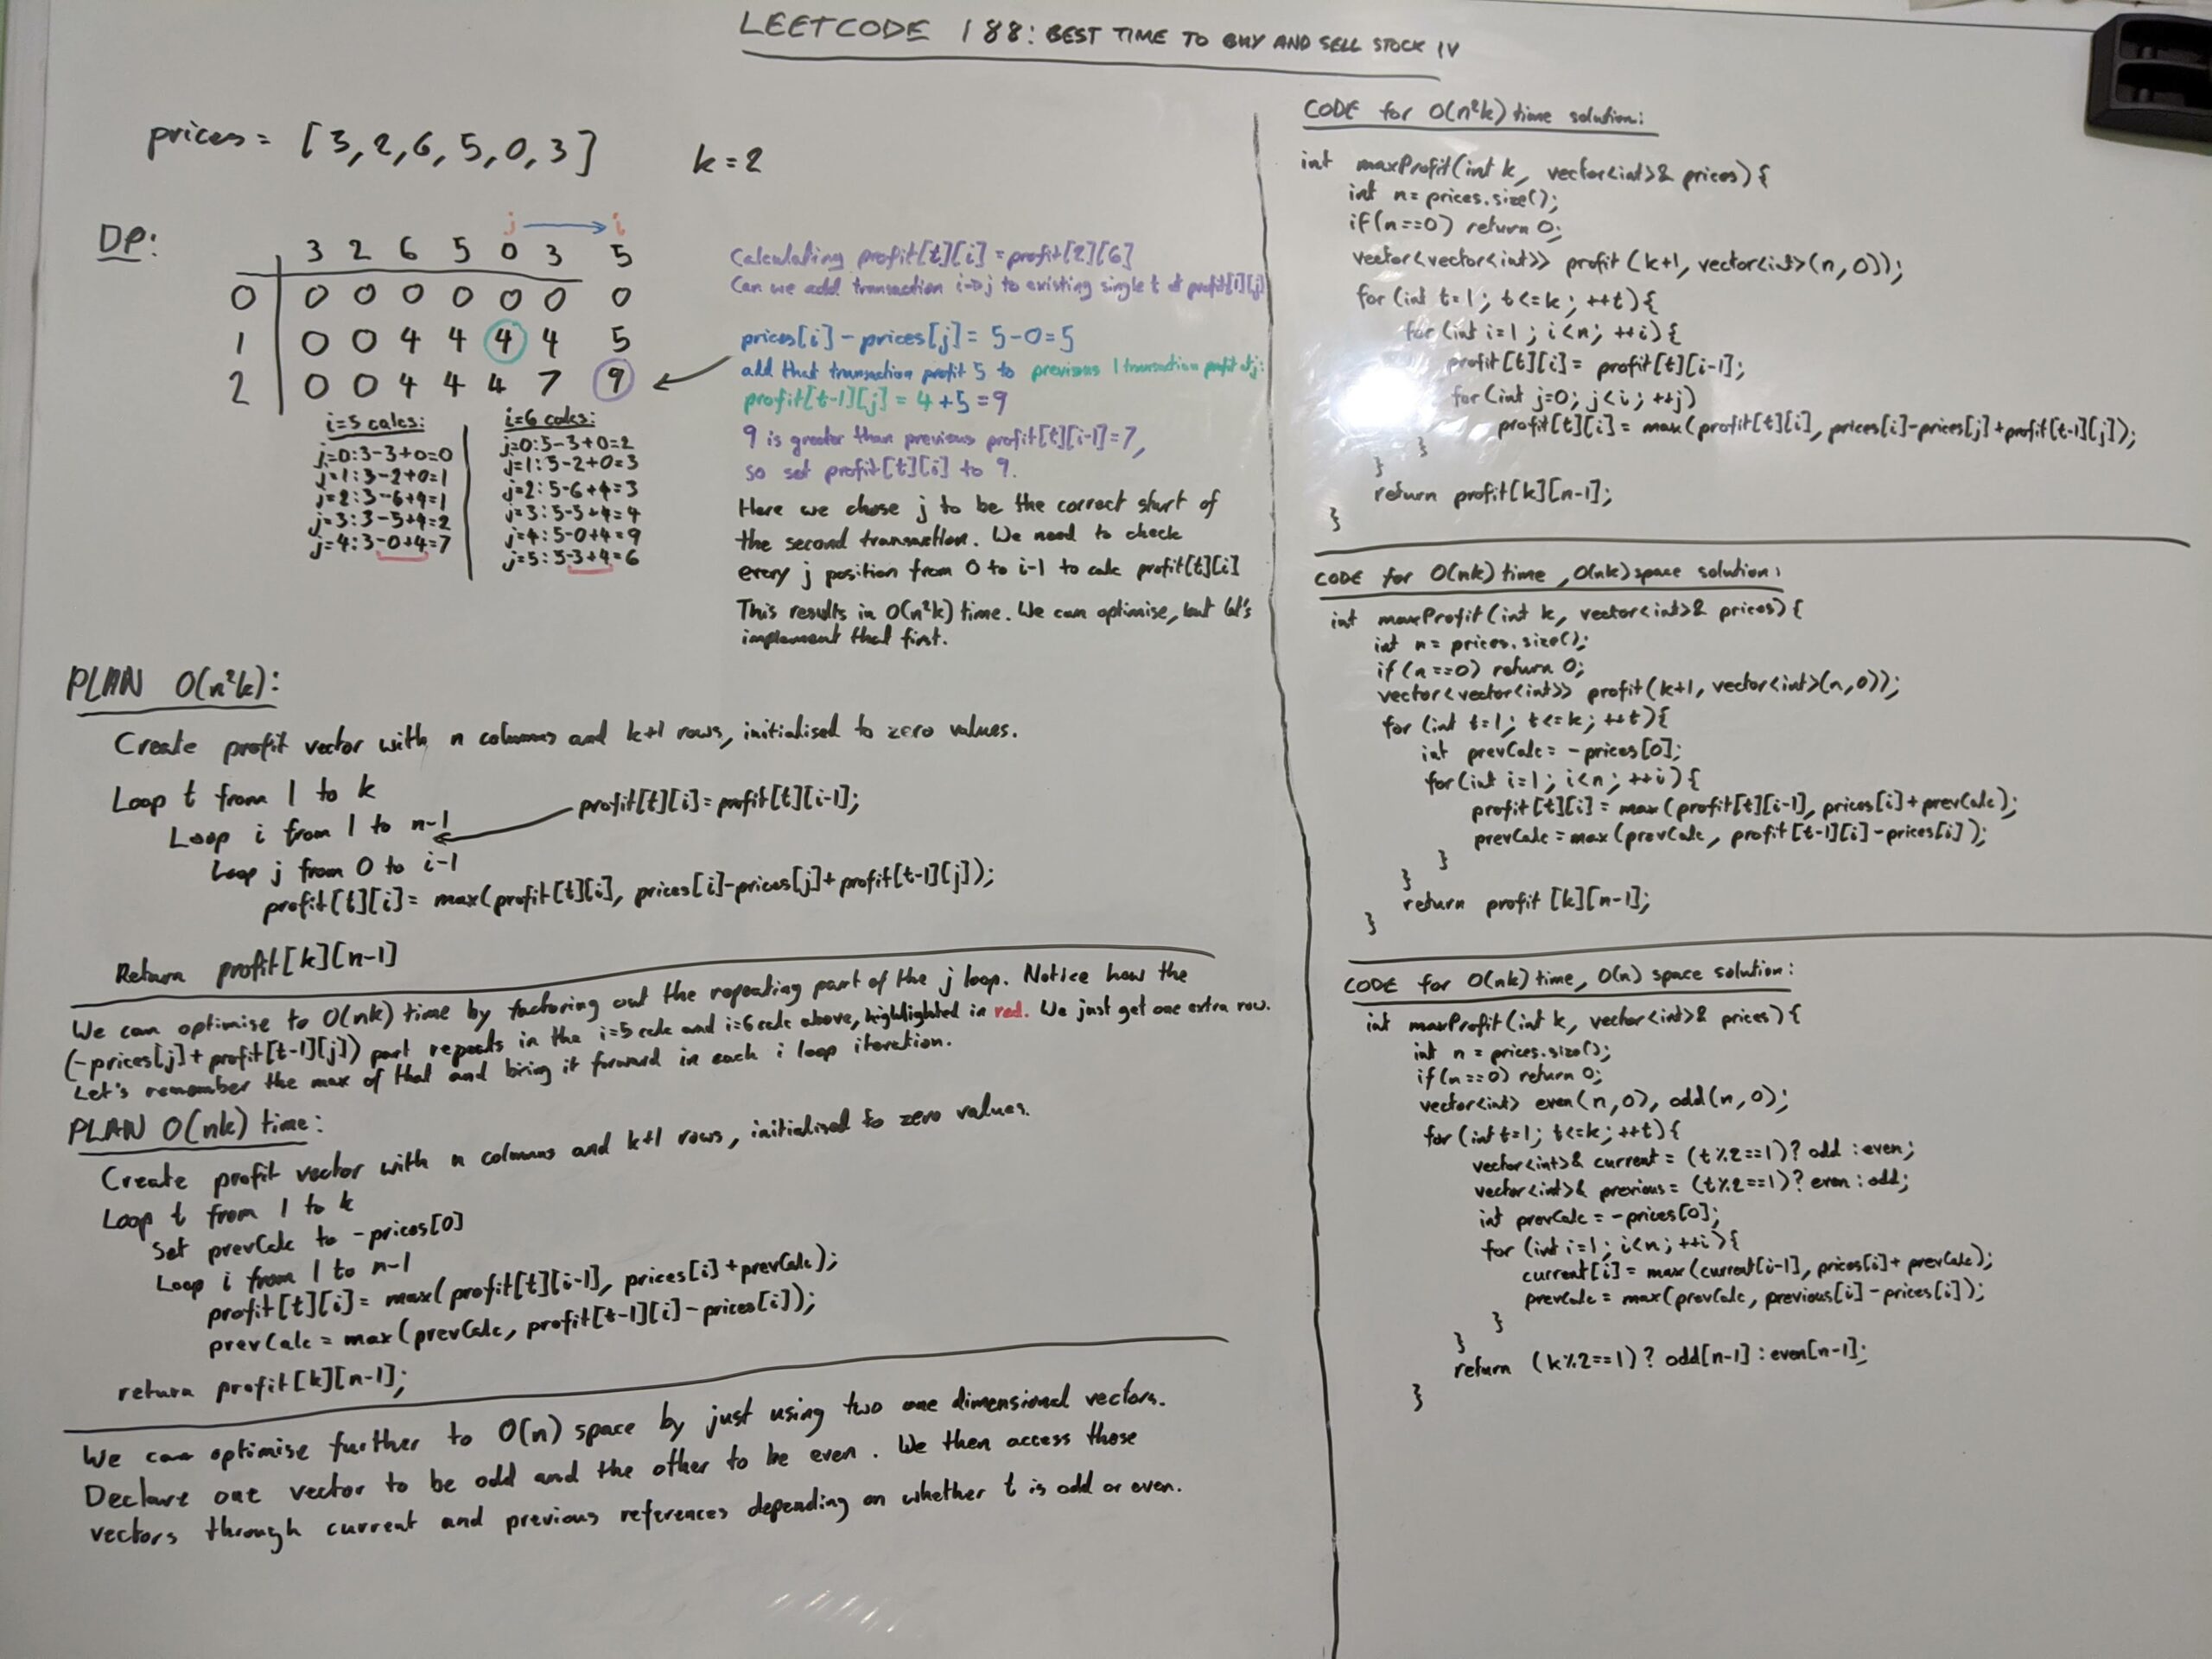 LEETCODE 188: BEST TIME TO BUY AND SELL STOCK IV
prices = [3,2,6,5,0,3]
k=2
DP:
j i
3 2 6 5 0 3 5
0 0 0 0 0 0 0 0
1 0 0 4 4 4 4 5
2 0 0 4 4 4 7 9
i=5 calcs:
j=0:3-3+0=0
j=1:3-2+0=1
j=2:3-6+4=1
j=3:3-5+4=2
j=4:3-0+4=7
i=6 calcs:
j=0:5-3+0=2
j=1:5-2+0=3
j=2:5-6+4=3
j=3:5-5+4=4
j=4:5-0+4=9
j=5:5-3+4=6
Calculating profit[t][i] = profit[2][6]
Can we add transaction i->j to existing single t at profit[1][j]
prices[i] - prices[j] = 5-0=5
add that transaction profit 5 to previous 1 transaction profit at j:
profit[t-1][j] = 4+5=9
9 is greater than previous profit[t][i-1]=7,
so set profit[t][i] to 9.
Here we chose j to be the correct start of
the second transaction. We need to check
every j position from 0 to i-1 to calc profit[t][i]
This results in O(n²k) time. We can optimise, but let's
implement that first.
PLAN O(n²k):
Create profit vector with n columns and k+1 rows, initialised to zero values.
Loop t from 1 to k
Loop i from 1 to n-1
profit[t][i]=profit[t][i-1];
Loop j from 0 to i-1
profit[t][i]= max(profit[t][i], prices[i]-prices[j]+profit[t-1][j]);
Return profit[k][n-1]
We can optimise to O(nk) time by factoring out the repeating part of the j loop. Notice how the
(-prices[j]+profit[t-1][j]) part repeats in the i=5 calc and i=6 calc above, highlighted in red. We just get one extra row.
Let's remember the max of that and bring it forward in each i loop iteration.
PLAN O(nk) time:
Create profit vector with n columns and k+1 rows, initialised to zero values.
Loop t from 1 to k
Set prevCalc to -prices[0]
Loop i from 1 to n-1
profit[t][i]= max(profit[t][i-1], prices[i]+prevCalc);
prevCalc = max(prevCalc, profit[t-1][i]-prices[i]);
return profit[k][n-1];
We can optimise further to O(n) space by just using two one dimensional vectors.
Declare one vector to be odd and the other to be even. We then access those
vectors through current and previous references depending on whether t is odd or even.
CODE for O(n²k) time solution:
int maxProfit(int k, vector<int>& prices){
int n= prices.size();
if(n==0) return 0;
vector<vector<int>> profit (k+1, vector<int>(n,0));
for(int t=1; t<=k; ++t){
for(int i=1; i<n; ++i){
profit[t][i]= profit[t][i-1];
for(int j=0; j<i; ++j)
profit[t][i]= max(profit[t][i], prices[i]-prices[j]+profit[t-1][j]);
}
}
return profit[k][n-1];
}
CODE for O(nk) time, O(nk) space solution:
int maxProfit(int k, vector<int>& prices){
int n= prices.size();
if(n==0) return 0;
vector<vector<int>> profit(k+1, vector<int>(n,0));
for(int t=1; t<=k; ++t){
int prevCalc = -prices[0];
for(int i=1; i<n; ++i){
profit[t][i] = max(profit[t][i-1], prices[i]+prevCalc);
prevCalc = max(prevCalc, profit[t-1][i]-prices[i]);
}
}
return profit [k][n-1];
}
CODE for O(nk) time, O(n) space solution:
int maxProfit(int k, vector<int>& prices){
int n = prices.size();
if(n==0) return 0;
vector<int> even(n,0), odd(n,0);
for(int t=1; t<=k; ++t){
vector<int>& current = (t%2==1)? odd :even;
vector<int>& previous= (t%2==1)? even:odd;
int prevCalc = -prices[0];
for (int i=1; i<n; ++i){
current[i]= max(current[i-1], prices[i]+ prevCalc);
prevCalc = max(prevCalc, previous[i]-prices[i]);
}
}
return (k%2==1)? odd[n-1]:even[n-1];
}